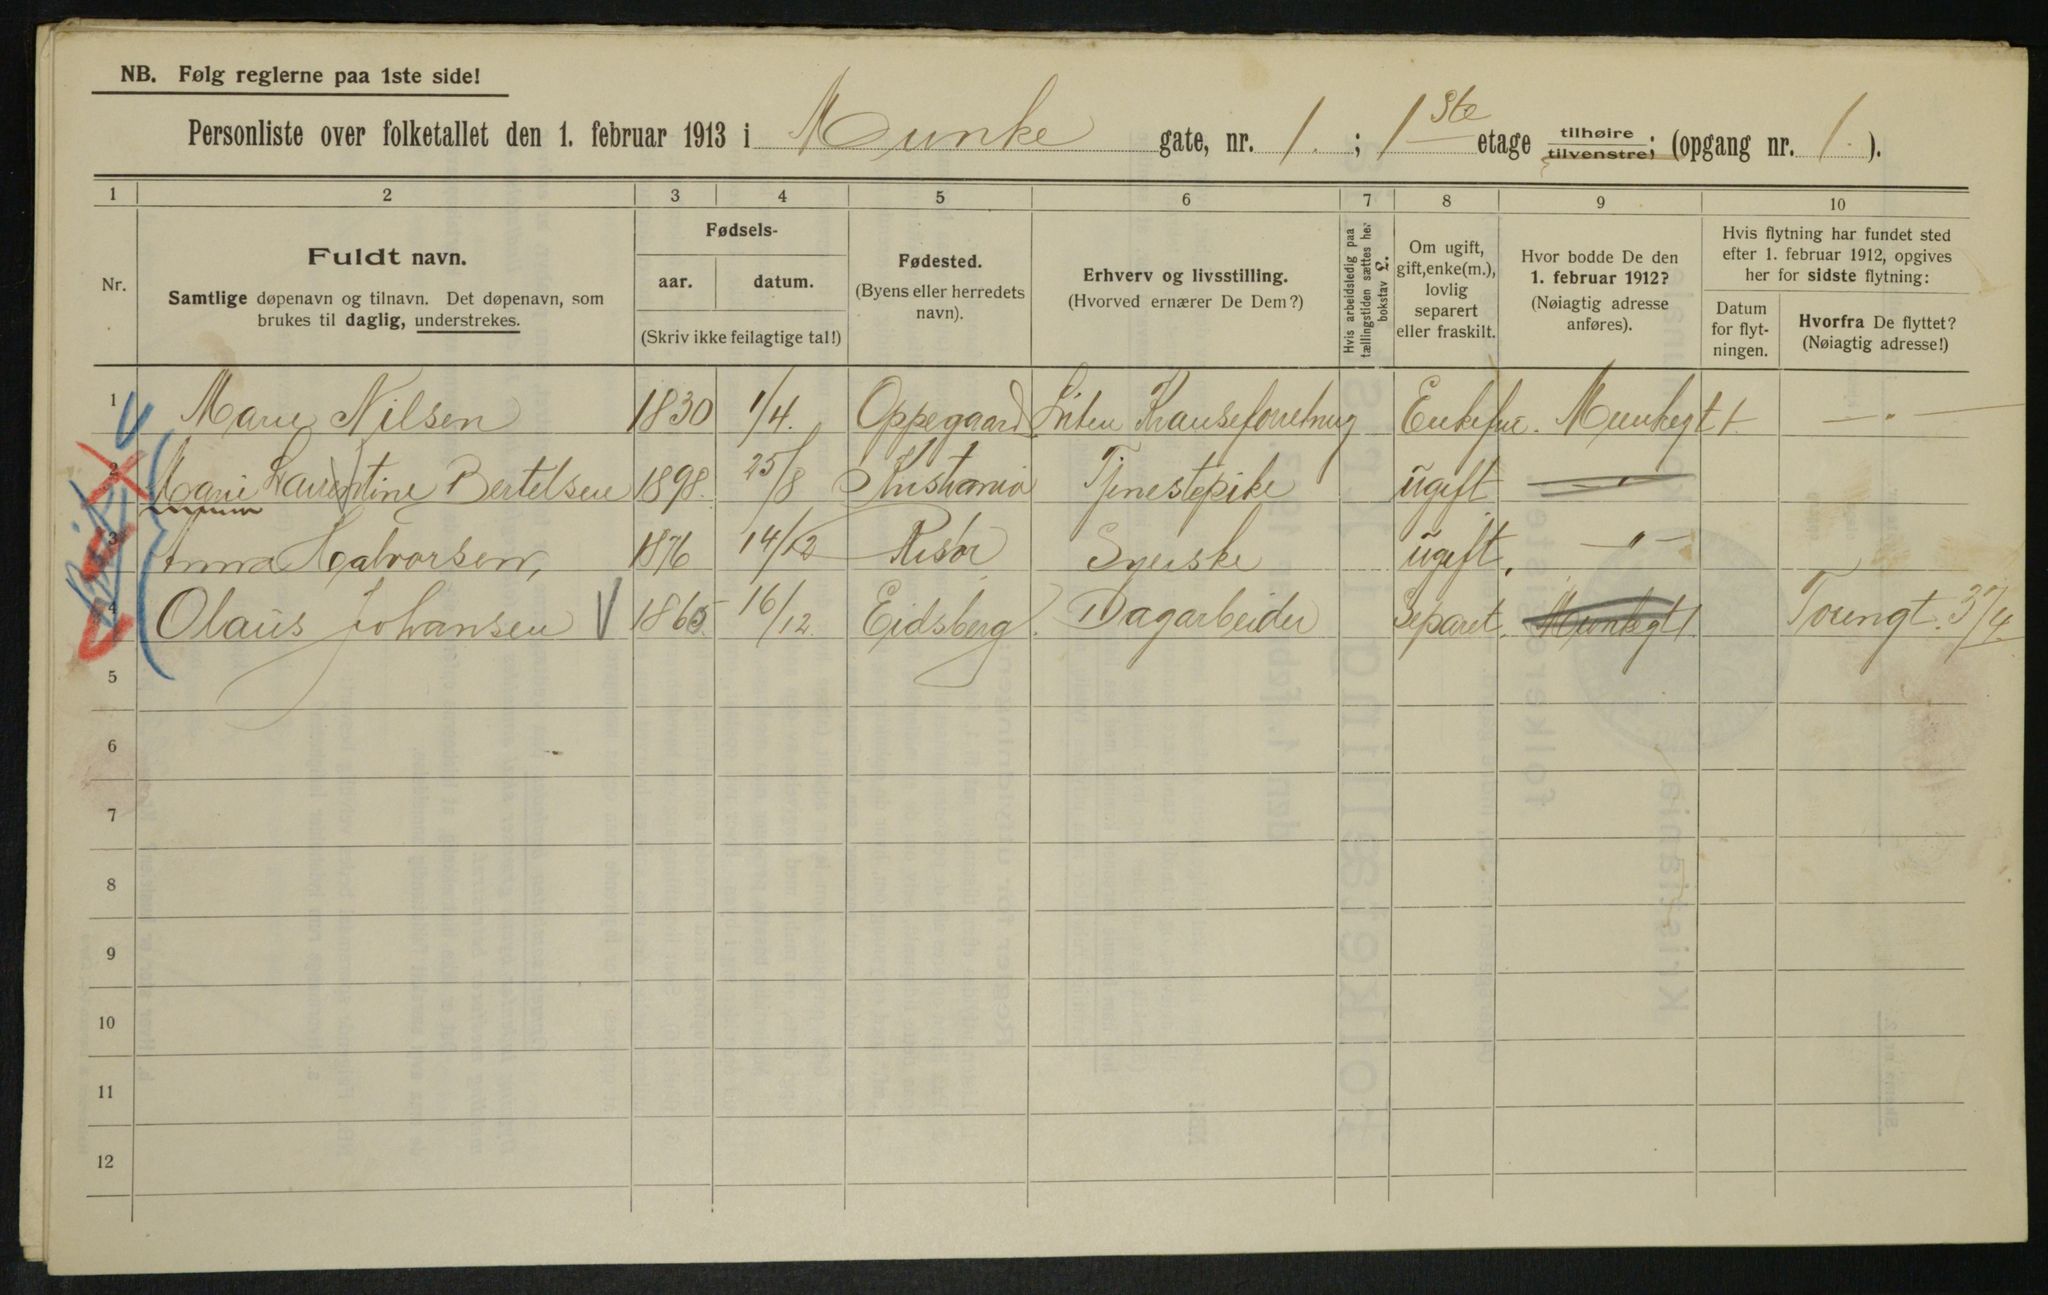 NB. Følg reglerne paa 1ste side!
Personliste over folketallet den 1. februar 1913 i Munke gate, nr. 1. ; 1ste etage tilhøire tilvenstre; (opgang nr. 1. ).
1 2 3 4 5 6 7 8 9 10
Nr.
Fuldt navn.
Samtlige døpenavn og tilnavn. Det døpenavn, som
brukes til daglig, understrekes.
Fødsels-
aar. datum.
(Skriv ikke feilagtige tal!)
Fødested.
(Byens eller herredets
navn).
Erhverv og livsstilling.
(Hvorved ernærer De Dem?)
Hvis arbeidsledig paa
tællingstiden sættes her
bokstav L.
Om ugift,
gift, enke(m.),
lovlig
separert
eller fraskilt.
Hvor bodde De den
1. februar 1912?
(Nøiagtig adresse
anføres).
Hvis flytning har fundet sted
efter 1. februar 1912, opgives
her for sidste flytning:
Datum
for flyt-
ningen.
Hvorfra De flyttet?
(Nøiagtig adresse!)
1 Marie Nilsen 1830 1/4. Oppegaard Liten Kranseforretnug Enkefue. Munkegt 1 — " —
2 Marie Laurentine Bertelsen 1898. 25/8 Kristiania Tjenestepike ugift — " —
3 Anna Halvorsen, 1876 14/12 Risør Syerske ugift. — " —
4 Olaus Johansen V 1865. 16/12 Eidsberg. Dagarbeider Separet. Munkegt 1 Toiengt. 37/4
5
6
7
8
9
10
11
12